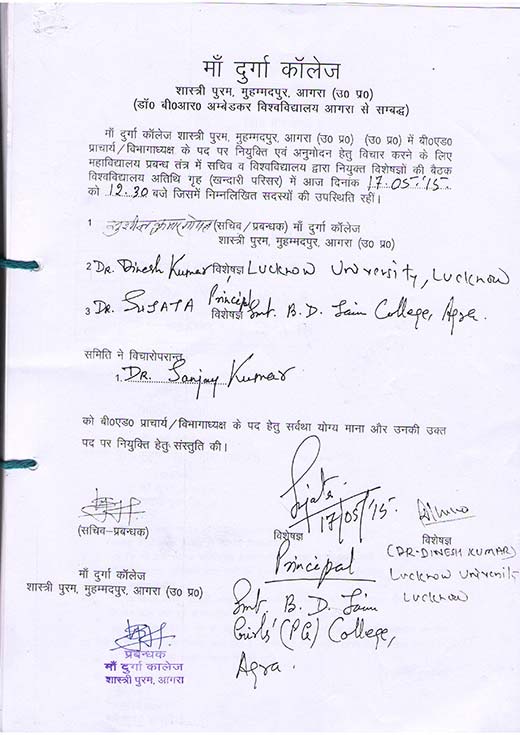 माँ दुर्गा कॉलेज
शास्त्री पुरम, मुहम्मदपुर, आगरा (उ0 प्र0)
(डॉ0 बी0आर0 अम्बेडकर विश्वविद्यालय आगरा से सम्बद्ध)
माँ दुर्गा कॉलेज शास्त्री पुरम, मुहम्मदपुर, आगरा (उ0 प्र0) (उ0 प्र0) में बी0एड0
प्राचार्य/विभागाध्यक्ष के पद पर नियुक्ति एवं अनुमोदन हेतु विचार करने के लिए
महाविद्यालय प्रबन्ध तंत्र में सचिव व विश्वविद्यालय द्वारा नियुक्त विशेषज्ञों की बैठक
विश्वविद्यालय अतिथि गृह (खन्दारी परिसर) में आज दिनाक 17.05.'15.
को 12.30 बजे जिसमें निम्नलिखित सदस्यों की उपस्थिति रहीं।
1 (सचिव/प्रबन्धक) माँ दुर्गा कॉलेज
शास्त्री पुरम, मुहम्मदपुर, आगरा (उ0 प्र0)
2 DR. Dinesh Kumar विशेषज्ञ Lucknow University, Lucknow
3 DR. SUJATA Principal विशेषज्ञ Smt. B. D. Jain College, Agra.
समिति ने विचारोपरान्त
1. DR. Sanjay Kumar
को बी0एड0 प्राचार्य/विभागाध्यक्ष के पद हेतु सर्वथा योग्य माना और उनकी उक्त
पद पर नियुक्ति हेतु संस्तुति की।
(सचिव-प्रबन्धक)
माँ दुर्गा कॉलेज
शास्त्री पुरम, मुहम्मदपुर, आगरा (उ0 प्र0)
प्रबन्धक
माँ दुर्गा कालेज
शास्त्री पुरम, आगरा
Sujata
17/05/'15.
विशेषज्ञ
Principal
Smt. B. D. Jain
Girls' (PG) College,
Agra.
विशेषज्ञ
(DR. DINESH KUMAR)
Lucknow University
Lucknow